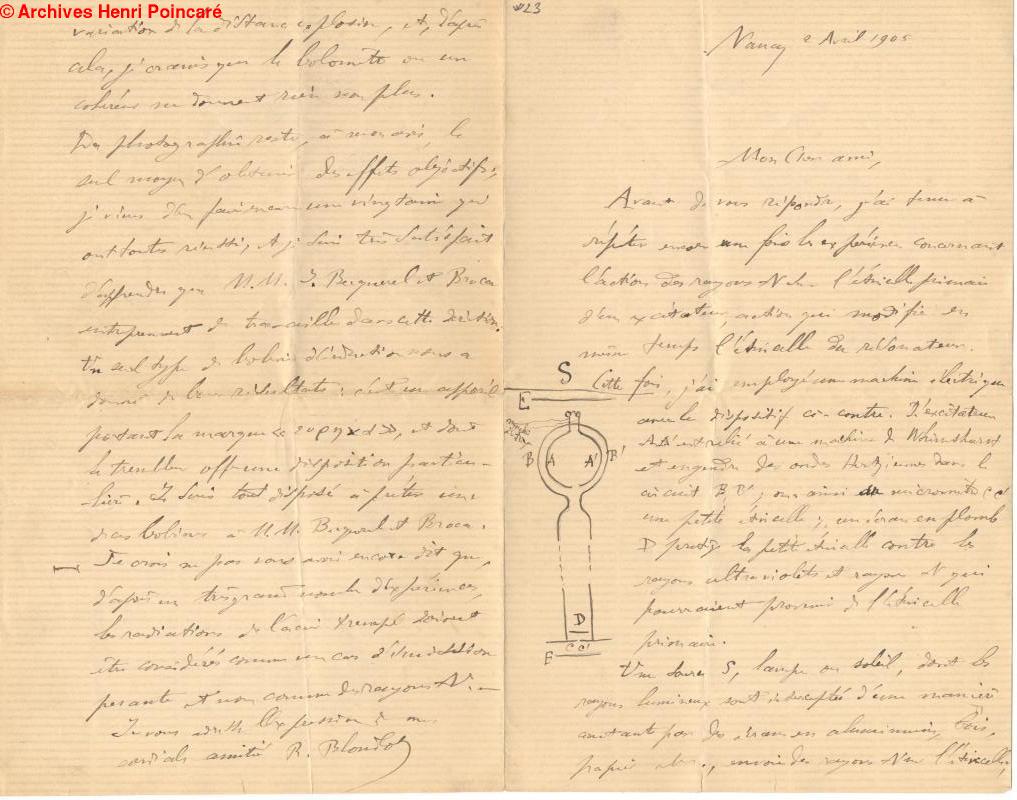 © Archives Henri Poincaré
variation de la distance explosive, et, d'après
cela, je crains que le bolomètre ou un
cohéreur ne donnent rien non plus.
La photographie reste, à mon avis, le
seul moyen d'obtenir des effets objectifs;
je viens d'en faire encore une vingtaine qui
ont toutes réussi, et je suis très satisfait
d'apprendre que M.M. J. Becquerel et Broca
entreprennent de travailler dans cette direction.
Un seul type de bobine d'induction nous a
donné de bons résultats: c'est un appareil
portant la marque et dont
le trembleur offre une disposition particu-
lière. Je suis tout disposé à prêter une
de ces bobines à M.M. Becquerel et Broca.
Je crois ne pas vous avoir encore dit que,
d'après un très grand nombre d'expériences,
les radiations de l'acier trempé doivent
être considérées comme un cas d'émission
pesante et non comme des rayons N. —
Je vous adresse l'expression de mes
cordiales amitiés R. Blondlot
#23
Nancy 2 Avril 1905
Mon Cher ami,
Avant de vous répondre, j'ai tenu à
répéter encore une fois les expériences concernant
l'action des rayons N sur l'étincelle primaire
d'un excitateur, action qui modifie en
même temps l'étincelle du résonateur.
Cette fois, j'ai employé une machine électrique
avec le dispositif ci-contre. L'excitateur
AA' est relié à une machine de Whimshurst
et engendre des ondes Hertziennes dans le
circuit B, B'; on a ainsi au micromètre cc'
une petite étincelle; un écran en plomb
D protège la petite étincelle contre les
rayons ultraviolets et rayons N qui
pourraient provenir de l'étincelle
primaire.
Une source S, lampe ou soleil, dont les
rayons lumineux sont interceptés d'une manière
constante par des écrans en aluminium, bois,
papier etc., envoie des rayons N sur l'étincelle,
S
E
B A A' B'
D
c c'
E